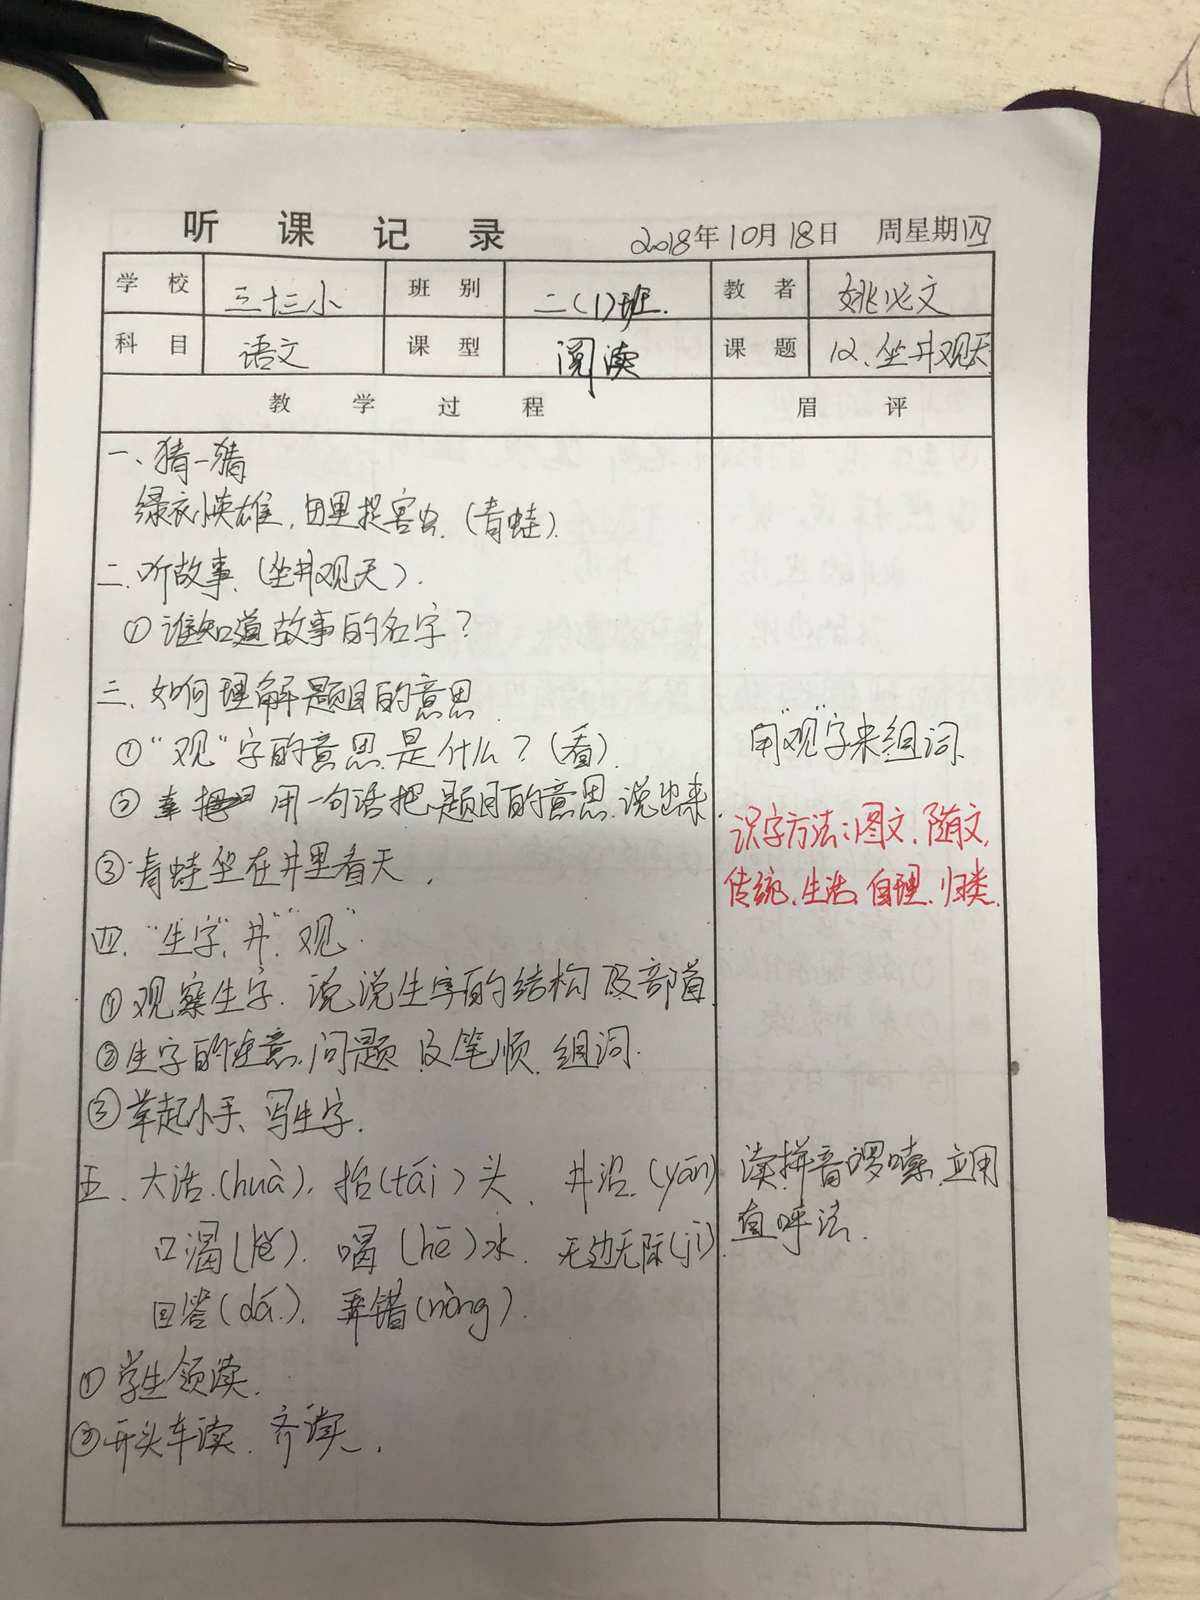 听课记录 2018年10月18日 周星期四
学校 三十三小 班别 二(1)班. 教者 姚文
科目 语文 课型 阅读 课题 12、坐井观天
教学过程 眉评
一、猜一猜
绿衣小英雄,田里捉害虫.(青蛙).
二.听故事.(坐井观天).
①谁知道故事的名字?
三、如何理解题目的意思.
①"观"字的意思是什么?(看).
用"观"字来组词.
② 用一句话把题目的意思说出来.
③青蛙坐在井里看天.
识字方法:图文、随文,
传统、生活、自理、归类.
四."生字"井""观"
①观察生字.说说生字的结构及部首.
②生字的注意问题及笔顺.组词.
③举起小手、写生字.
五.大话.(huà).抬(tái)头、井沿.(yán)
口渴(kě).喝(hē)水.无边无际(jì).
回答(dá.).弄错(nòng).
读拼音啰嗦.应用
直呼法.
①学生领读.
②开头车读.齐读.